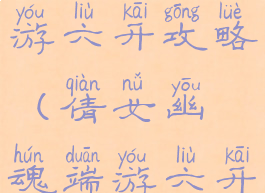 yóu liù kāi gōng lüè
游六开攻略
qiàn nǚ yōu
(倩女幽
hún duān yóu liù kāi
魂端游六开